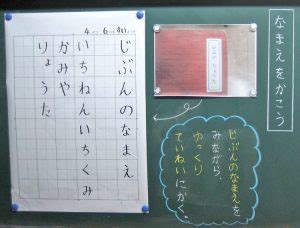 なまえをかこう
じぶんのなまえを
みながら、
ゆっくり
ていねいにかく。
じぶんのなまえ
いちねんいちくみ
かみや
りょうた